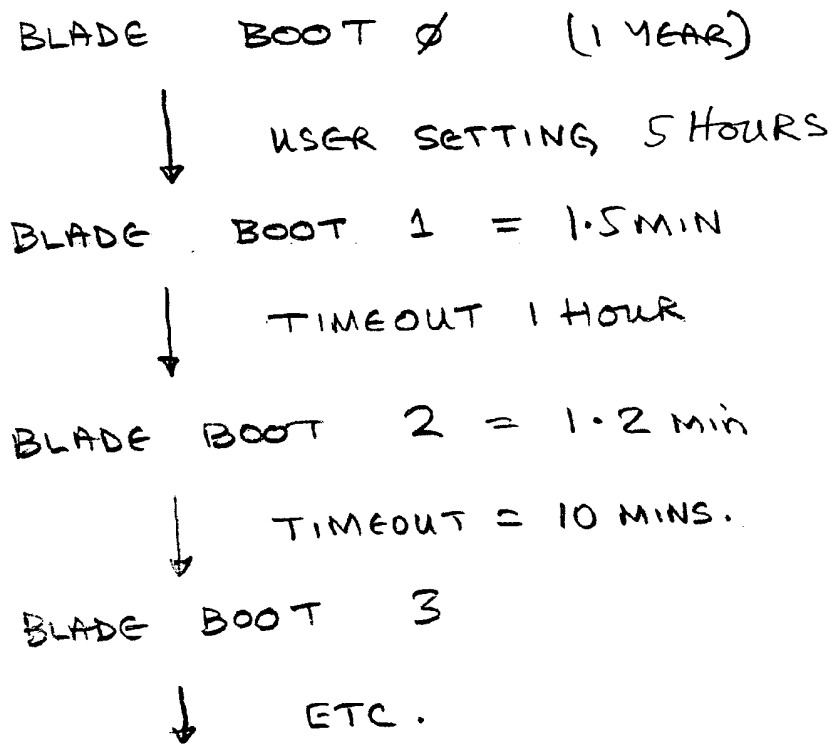 BLADE BOOT Ø (1 YEAR)
USER SETTING 5 HOURS
BLADE BOOT 1 = 1.5 MIN
TIMEOUT 1 HOUR
BLADE BOOT 2 = 1.2 Min
TIMEOUT = 10 MINS.
BLADE BOOT 3
ETC.